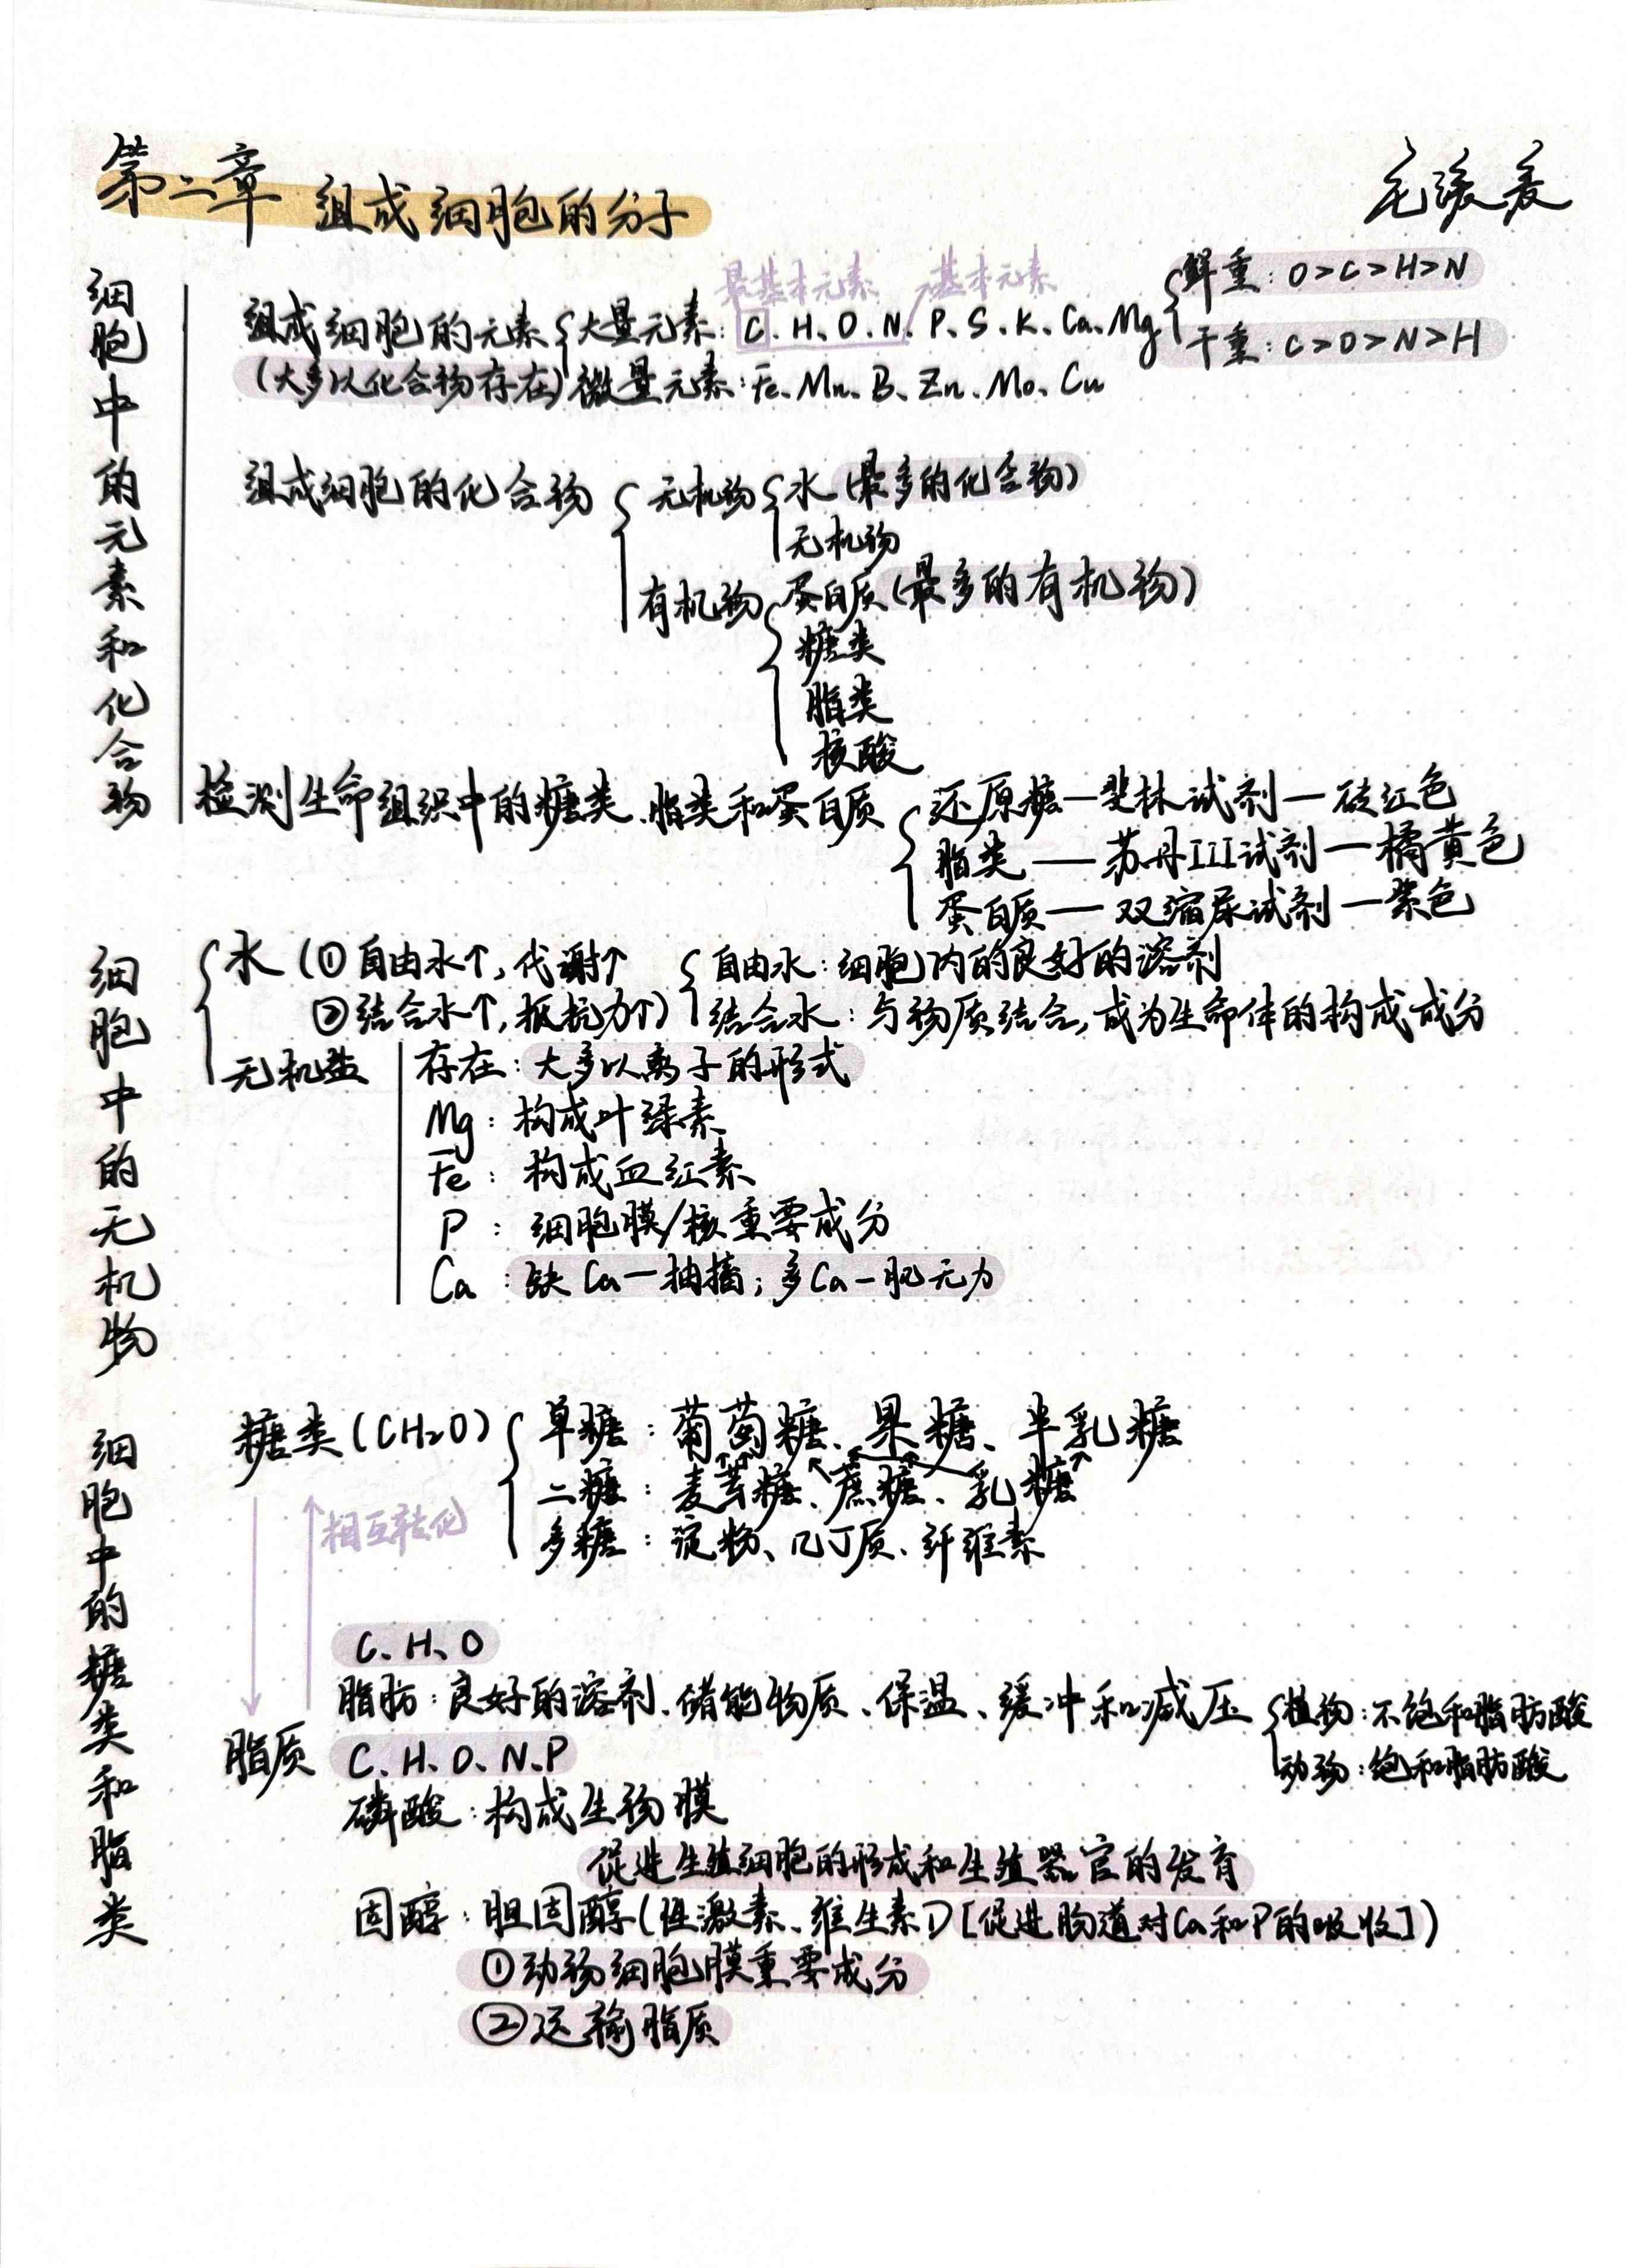 第二章 组成细胞的分子
细胞中的元素和化合物
最基本元素 基本元素
鲜重：O>C>H>N
组成细胞的元素 大量元素：C、H、O、N、P、S、K、Ca、Mg
干重：C>O>N>H
(大多以化合物存在) 微量元素：Fe、Mn、B、Zn、Mo、Cu
组成细胞的化合物 无机物 水(最多的化合物)
无机物
有机物 蛋白质(最多的有机物)
糖类
脂类
核酸
检测生命组织中的糖类、脂类和蛋白质 还原糖—斐林试剂—砖红色
脂类——苏丹III试剂—橘黄色
蛋白质——双缩尿试剂—紫色
细胞中的无机物
水(①自由水↑,代谢↑ 自由水：细胞内的良好的溶剂
②结合水↑,抵抗力↑) 结合水：与物质结合,成为生命体的构成成分
无机盐 存在：大多以离子的形式
Mg：构成叶绿素
Fe：构成血红素
P：细胞膜/核重要成分
Ca：缺Ca—抽搐；多Ca—肌无力
细胞中的糖类和脂类
糖类(CH₂O) 单糖：葡萄糖、果糖、半乳糖
二糖：麦芽糖、蔗糖、乳糖
相互转化
多糖：淀粉、几丁质、纤维素
C、H、O
脂肪：良好的溶剂、储能物质、保温、缓冲和减压 植物：不饱和脂肪酸
脂质 C、H、O、N、P 动物：饱和脂肪酸
磷酸：构成生物膜
促进生殖细胞的形成和生殖器官的发育
固醇：胆固醇(性激素、维生素D[促进肠道对Ca和P的吸收])
①动物细胞膜重要成分
②运输脂质